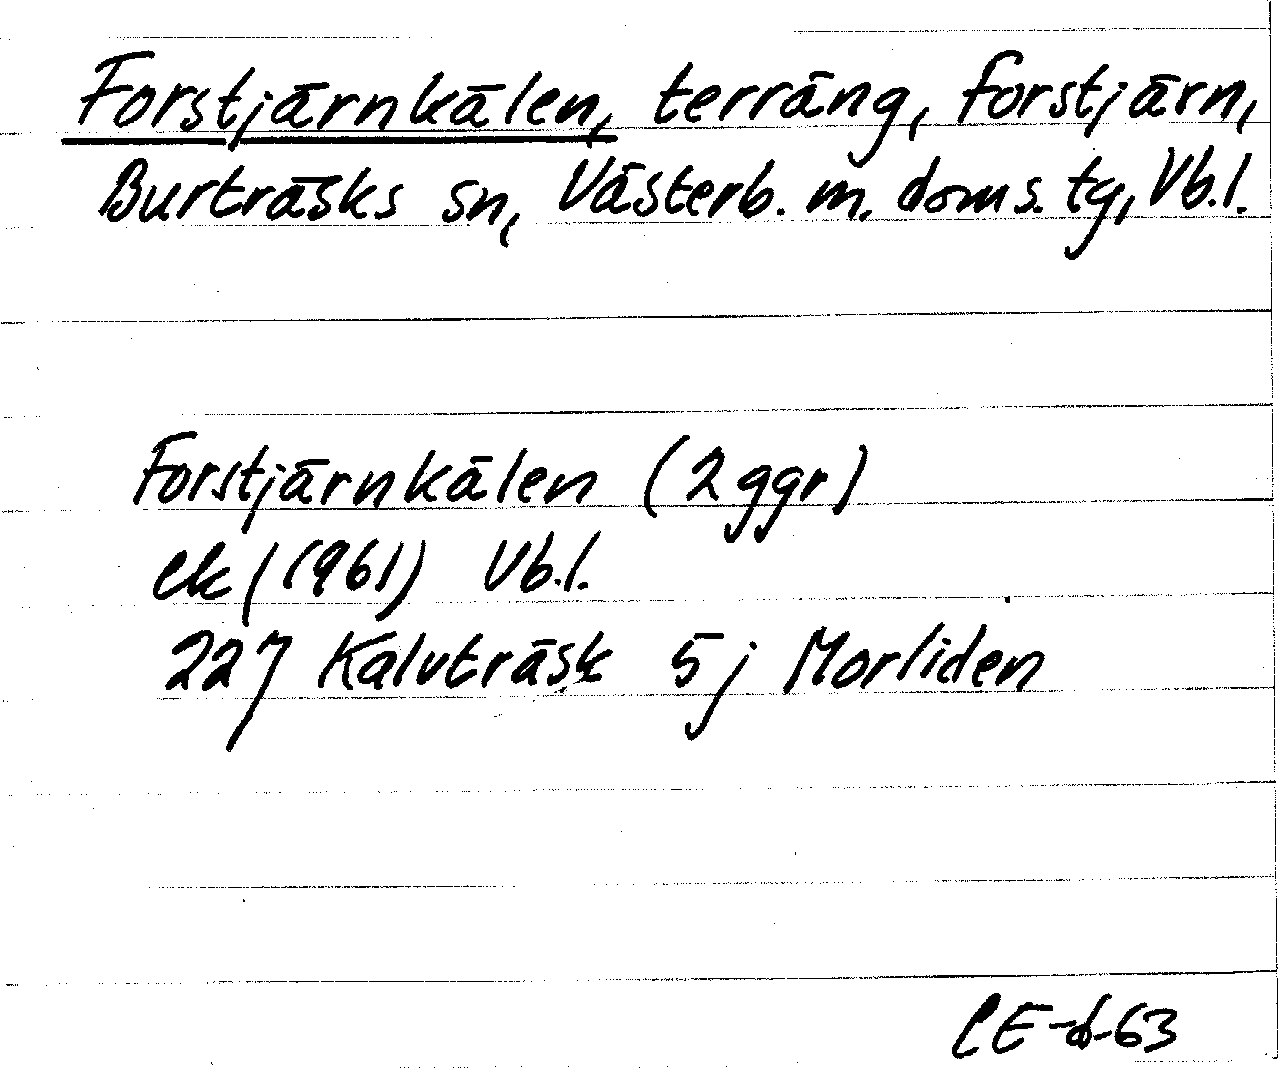 Forstjärnkälen, terräng, Forstjärn,
Burträsks sn, Västerb. m. doms. tg, Vb.l.
Forstjärnkälen (2 ggr)
ek (1961) Vb.l.
227 Kalvträsk 5j Morliden
CE-d-63